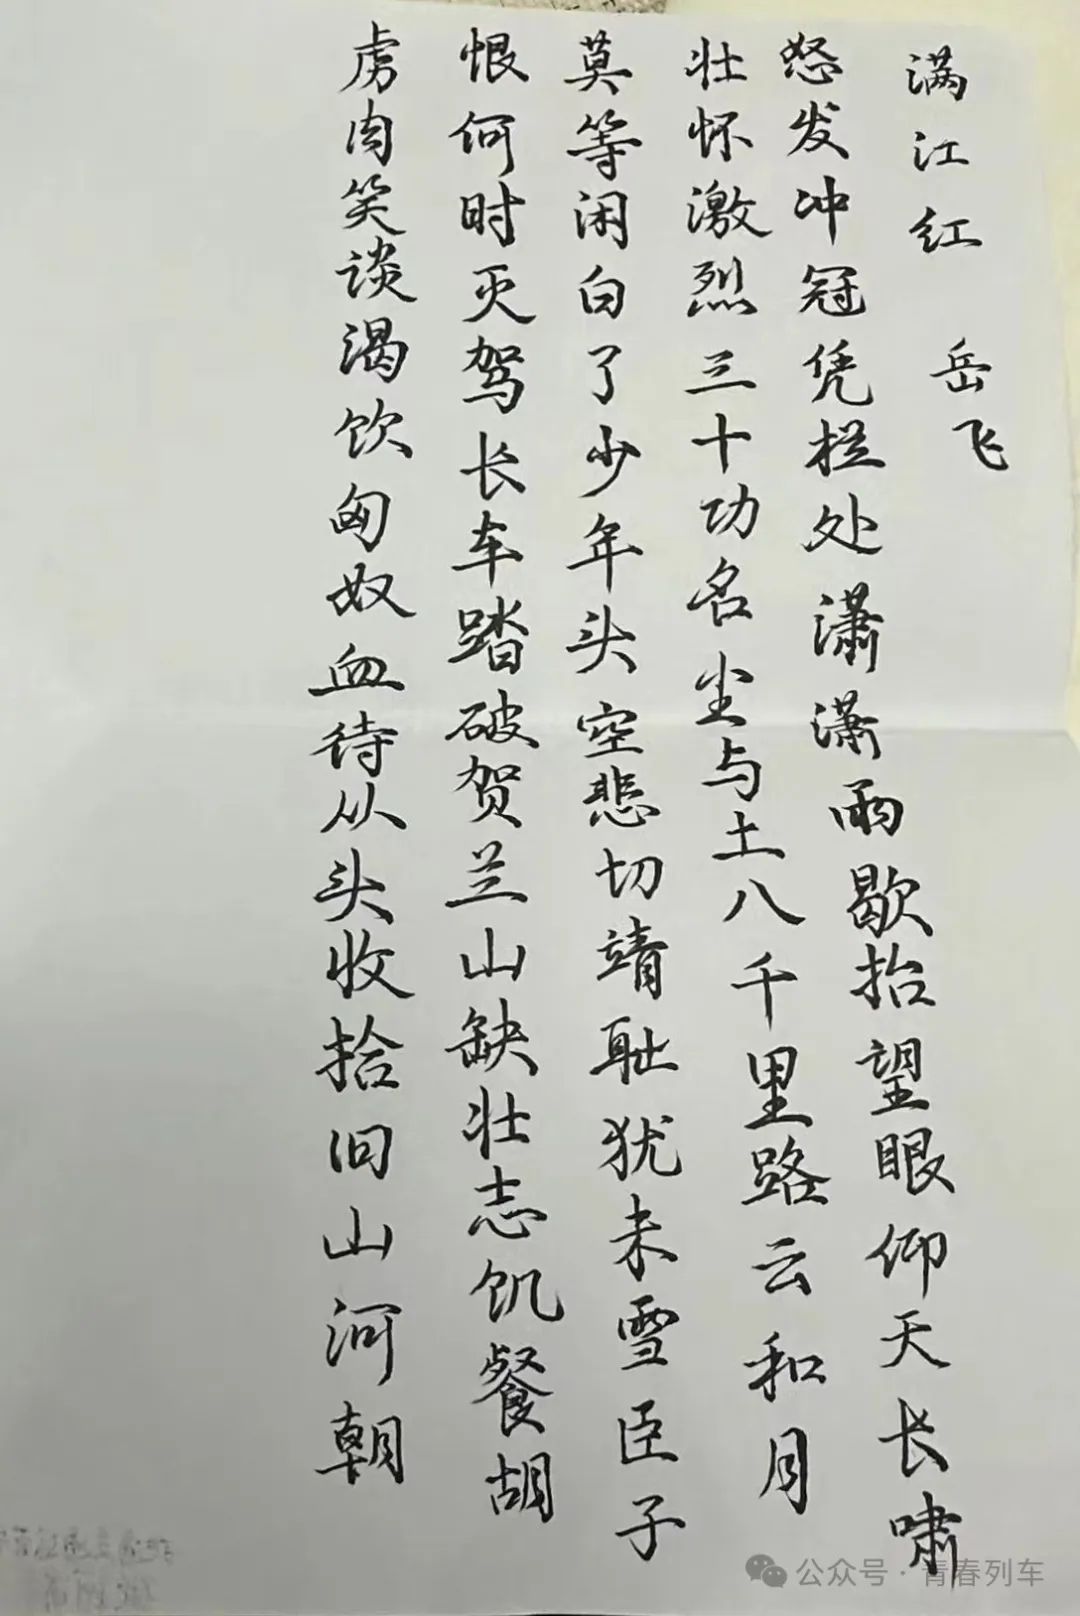 满江红 岳飞
怒发冲冠凭栏处潇潇雨歇抬望眼仰天长啸
壮怀激烈三十功名尘与土八千里路云和月
莫等闲白了少年头空悲切靖耻犹未雪臣子
恨何时灭驾长车踏破贺兰山缺壮志饥餐胡
虏肉笑谈渴饮匈奴血待从头收拾旧山河朝
公众号·青春列车